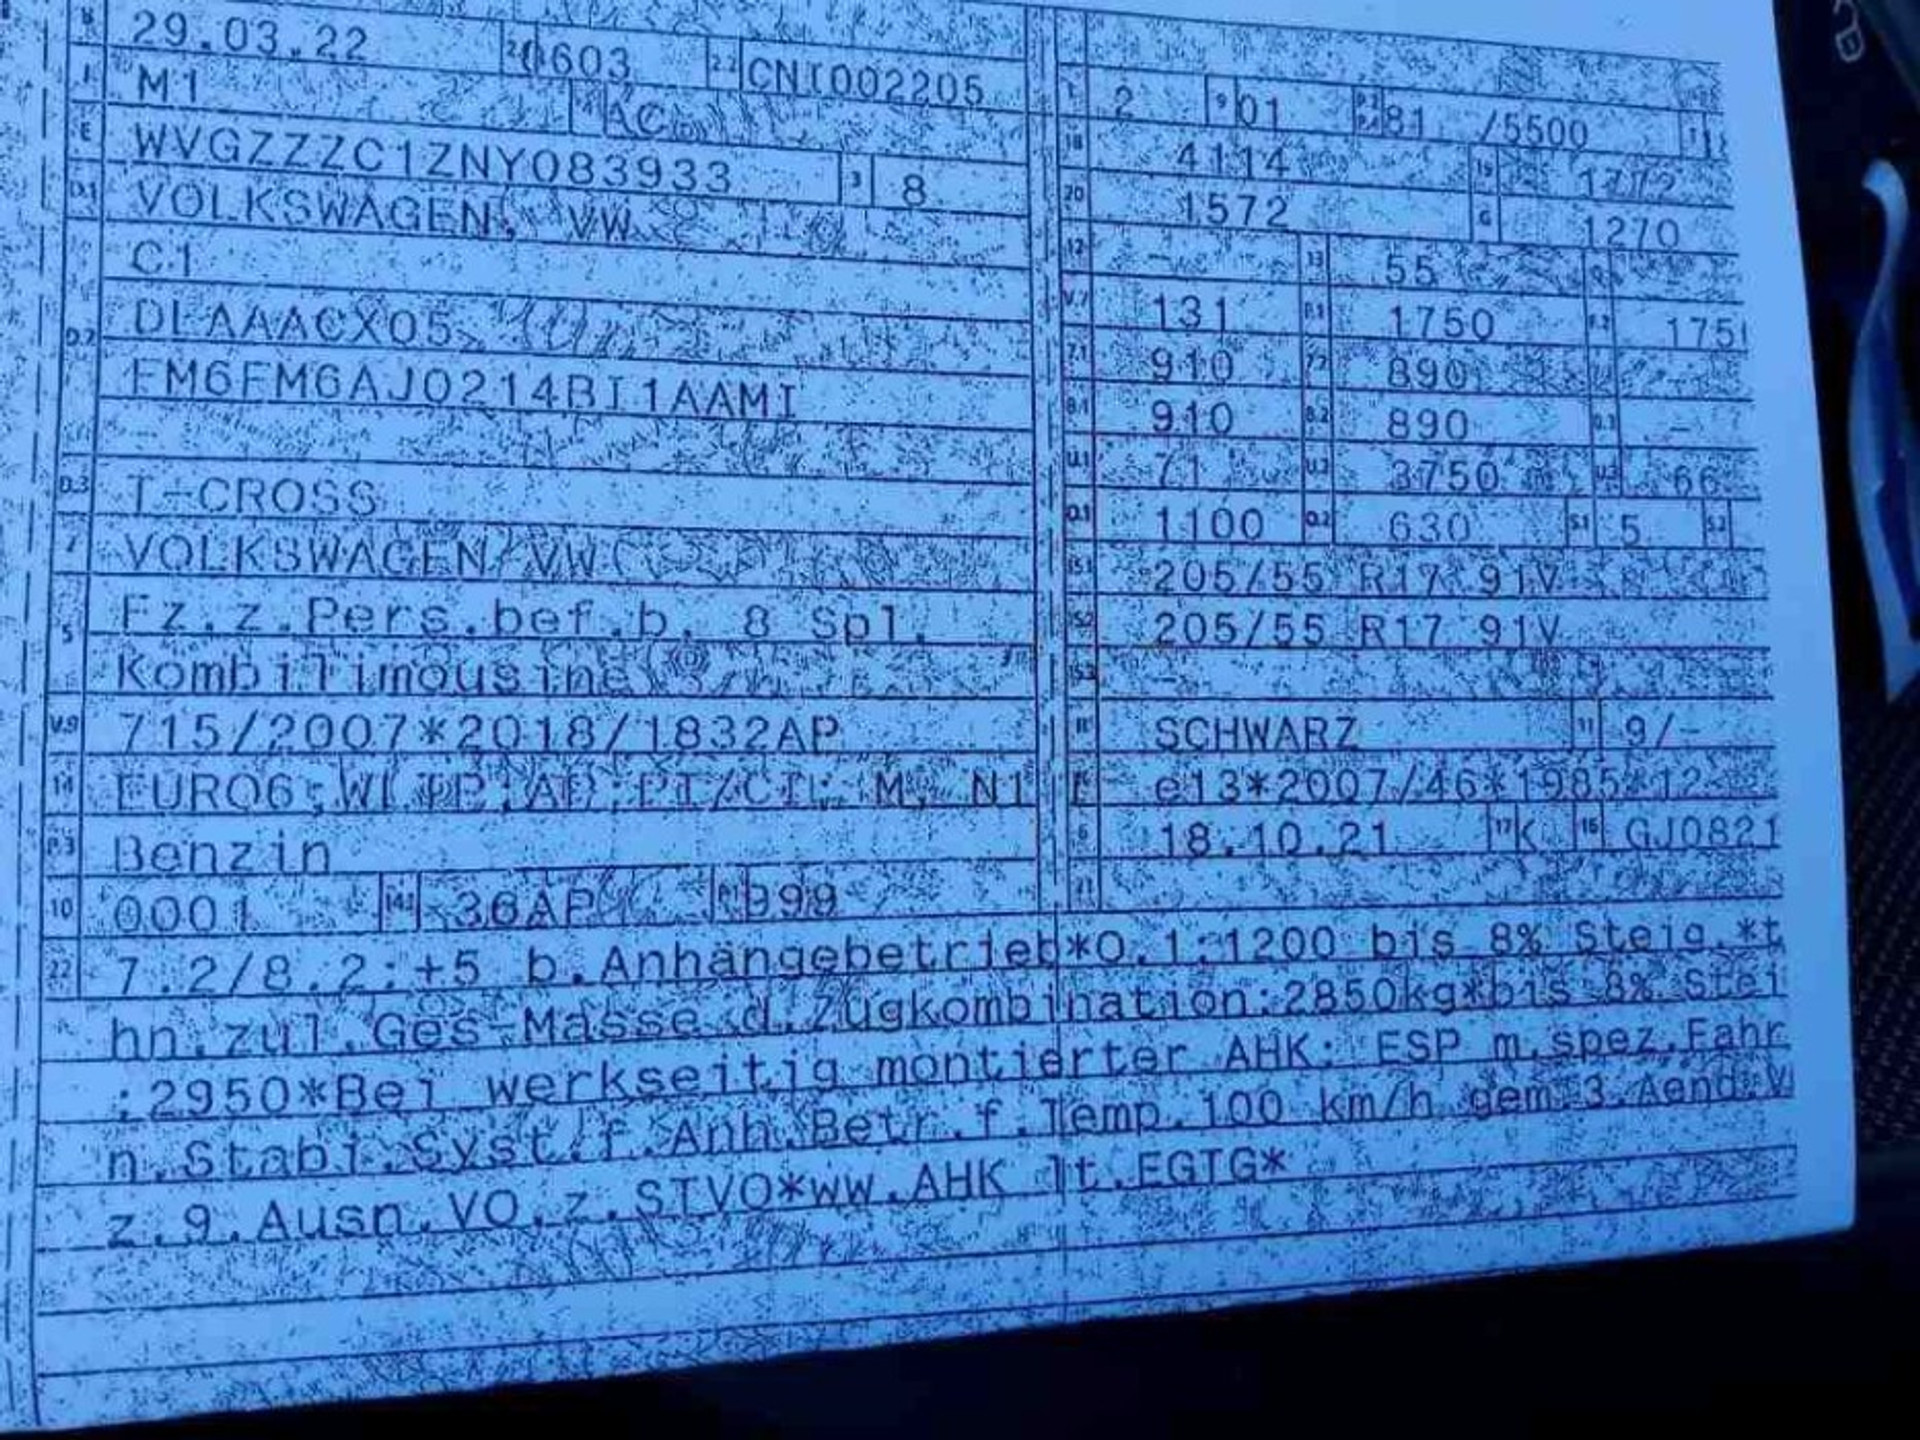 B 29.03.22 2.1 0603 2.2 CNT002205
J M1 4 AC
E WVGZZZC1ZNY083933 3 8
D.1 VOLKSWAGEN, VW
C1
D.2 DLAAACX05
FM6FM6AJ0214BI1AAMI
-
D.3 T-CROSS
2 VOLKSWAGEN, VW
5 Fz.z.Pers.bef.b. 8 Spl.
Kombilimousine
V.9 715/2007*2018/1832AP
14 EURO6;WLTP;AP;PI/CI; M, N1
P.3 Benzin
10 0001 14.1 36AP P.1 999
L 2 9 01 P.2 P.4 81 /5500
18 4114 19 1772
20 1572 G 1270
12 - 13 55 Q
V.7 131 F.1 1750 F.2
7.1 910 7.2 890
8.1 910 8.2 890 8.3 -
U.1 71 U.2 3750 U.3 66
O.1 1100 O.2 630 S.1 5 S.2
15.1 205/55 R17 91V
15.2 205/55 R17 91V
15.3 -
R SCHWARZ 11 9/-
K e13*2007/46*1985*12
6 18.10.21 17 K 16 GJ0821
21
22 7.2/8.2:+5 b.Anhängebetrieb*O.1:1200 bis 8% Steig.*t
hn.zul.Ges-Masse d.Zugkombination:2850kg*bis 8% Stei
:2950*Bei werkseitig montierter AHK: ESP m.spez.Fahr
n.Stabi.Syst.f.Anh.Betr.f.Temp.100 km/h gem.3.Aend.V
z.9.Ausn.VO.z.STVO*ww.AHK lt.EGTG*